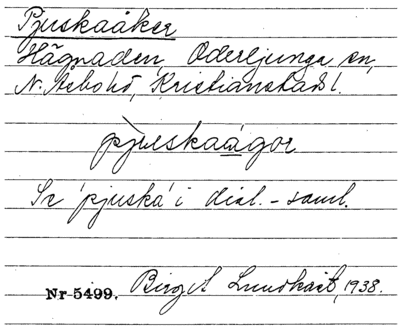 Pjuskaåker
Hägnaden, Oderljunga sn,
N. Åsbo hd, Kristianstads l.
pjuskaågor
Se 'pjuska' i dial. - saml.
Nr 5499. Birgit Lundkvist, 1938.